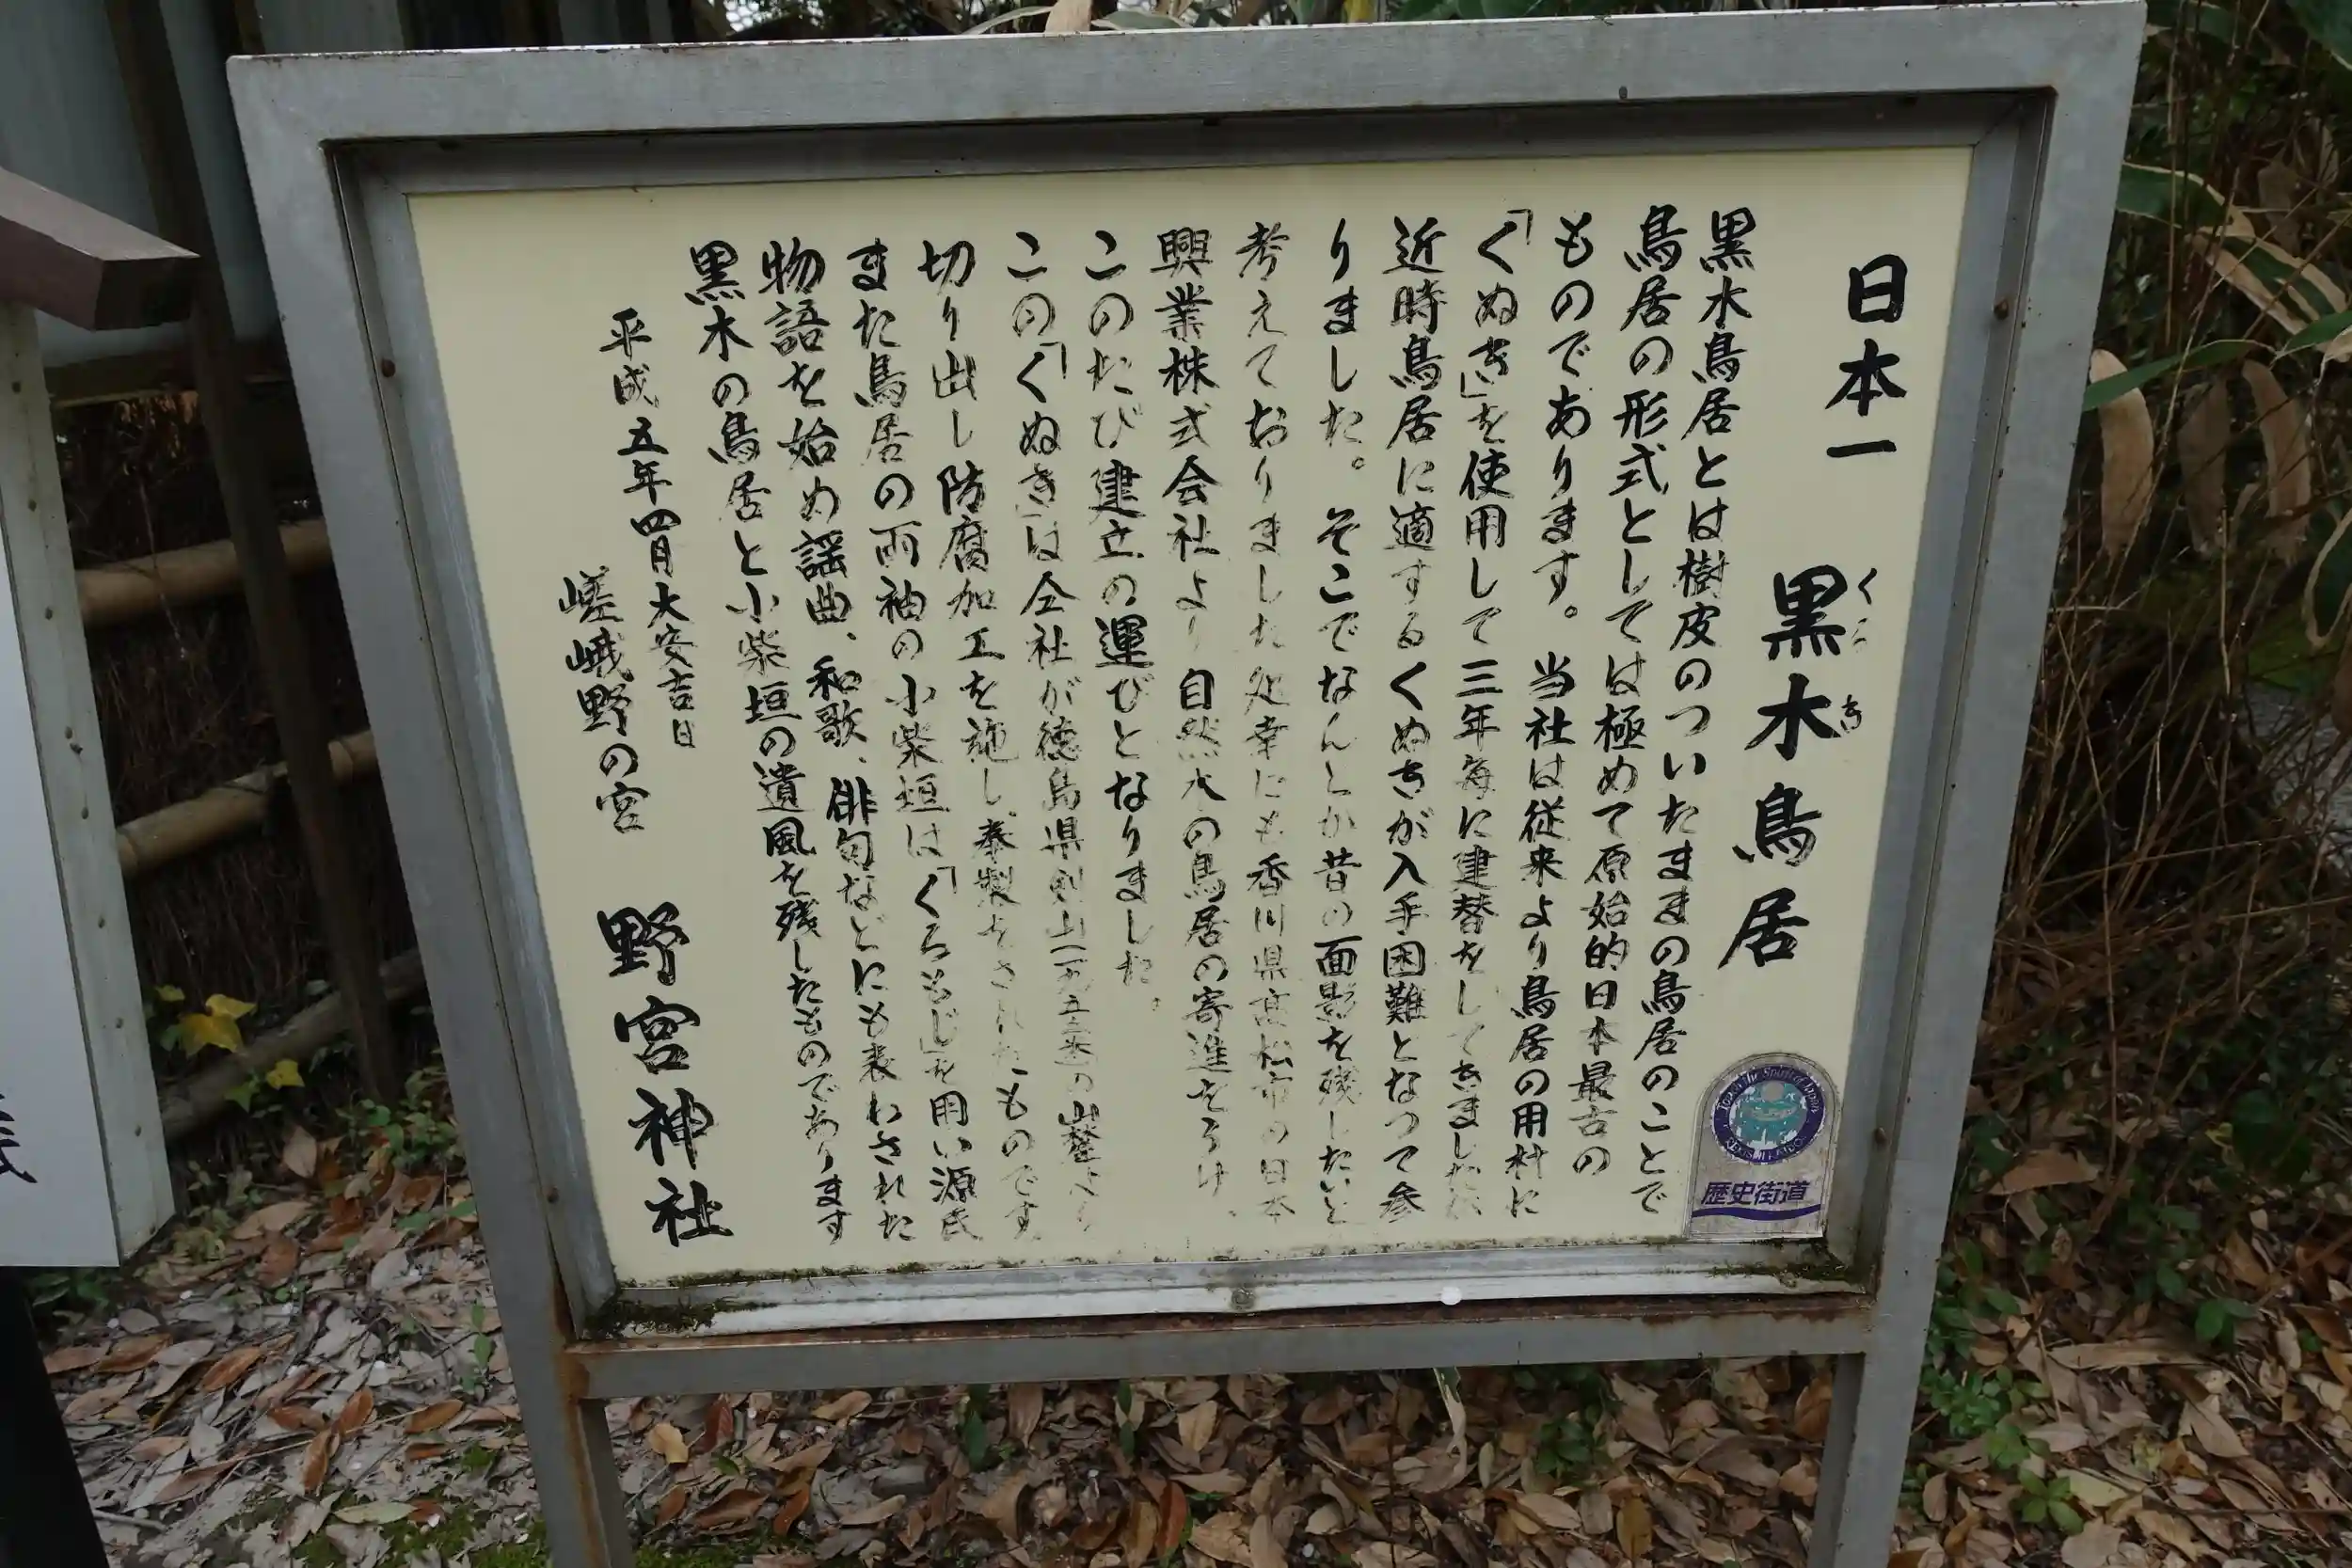 日本一 黒木鳥居
くろき
黒木鳥居とは樹皮のついたままの鳥居のことで
鳥居の形式としては極めて原始的日本最古の
ものであります。当社は従来より鳥居の用材に
「くぬぎ」を使用して三年毎に建替をしてきましたが
近時鳥居に適するくぬぎが入手困難となって参
りました。そこでなんとか昔の面影を残したいと
考えておりました処幸にも香川県高松市の日本
興業株式会社より自然木の鳥居の寄進をうけ、
このたび建立の運びとなりました。
この「くぬぎ」は仝社が徳島県剣山一九五五番の山麓より
切り出し防腐加工を施し、奉製をされたものです
また鳥居の両袖の小柴垣は「くろもじ」を用い源氏
物語を始め謡曲、和歌、俳句などにも表わされた
黒木の鳥居と小柴垣の遺風を残したものであります
平成五年四月大安吉日
嵯峨野の宮 野宮神社
歴史街道